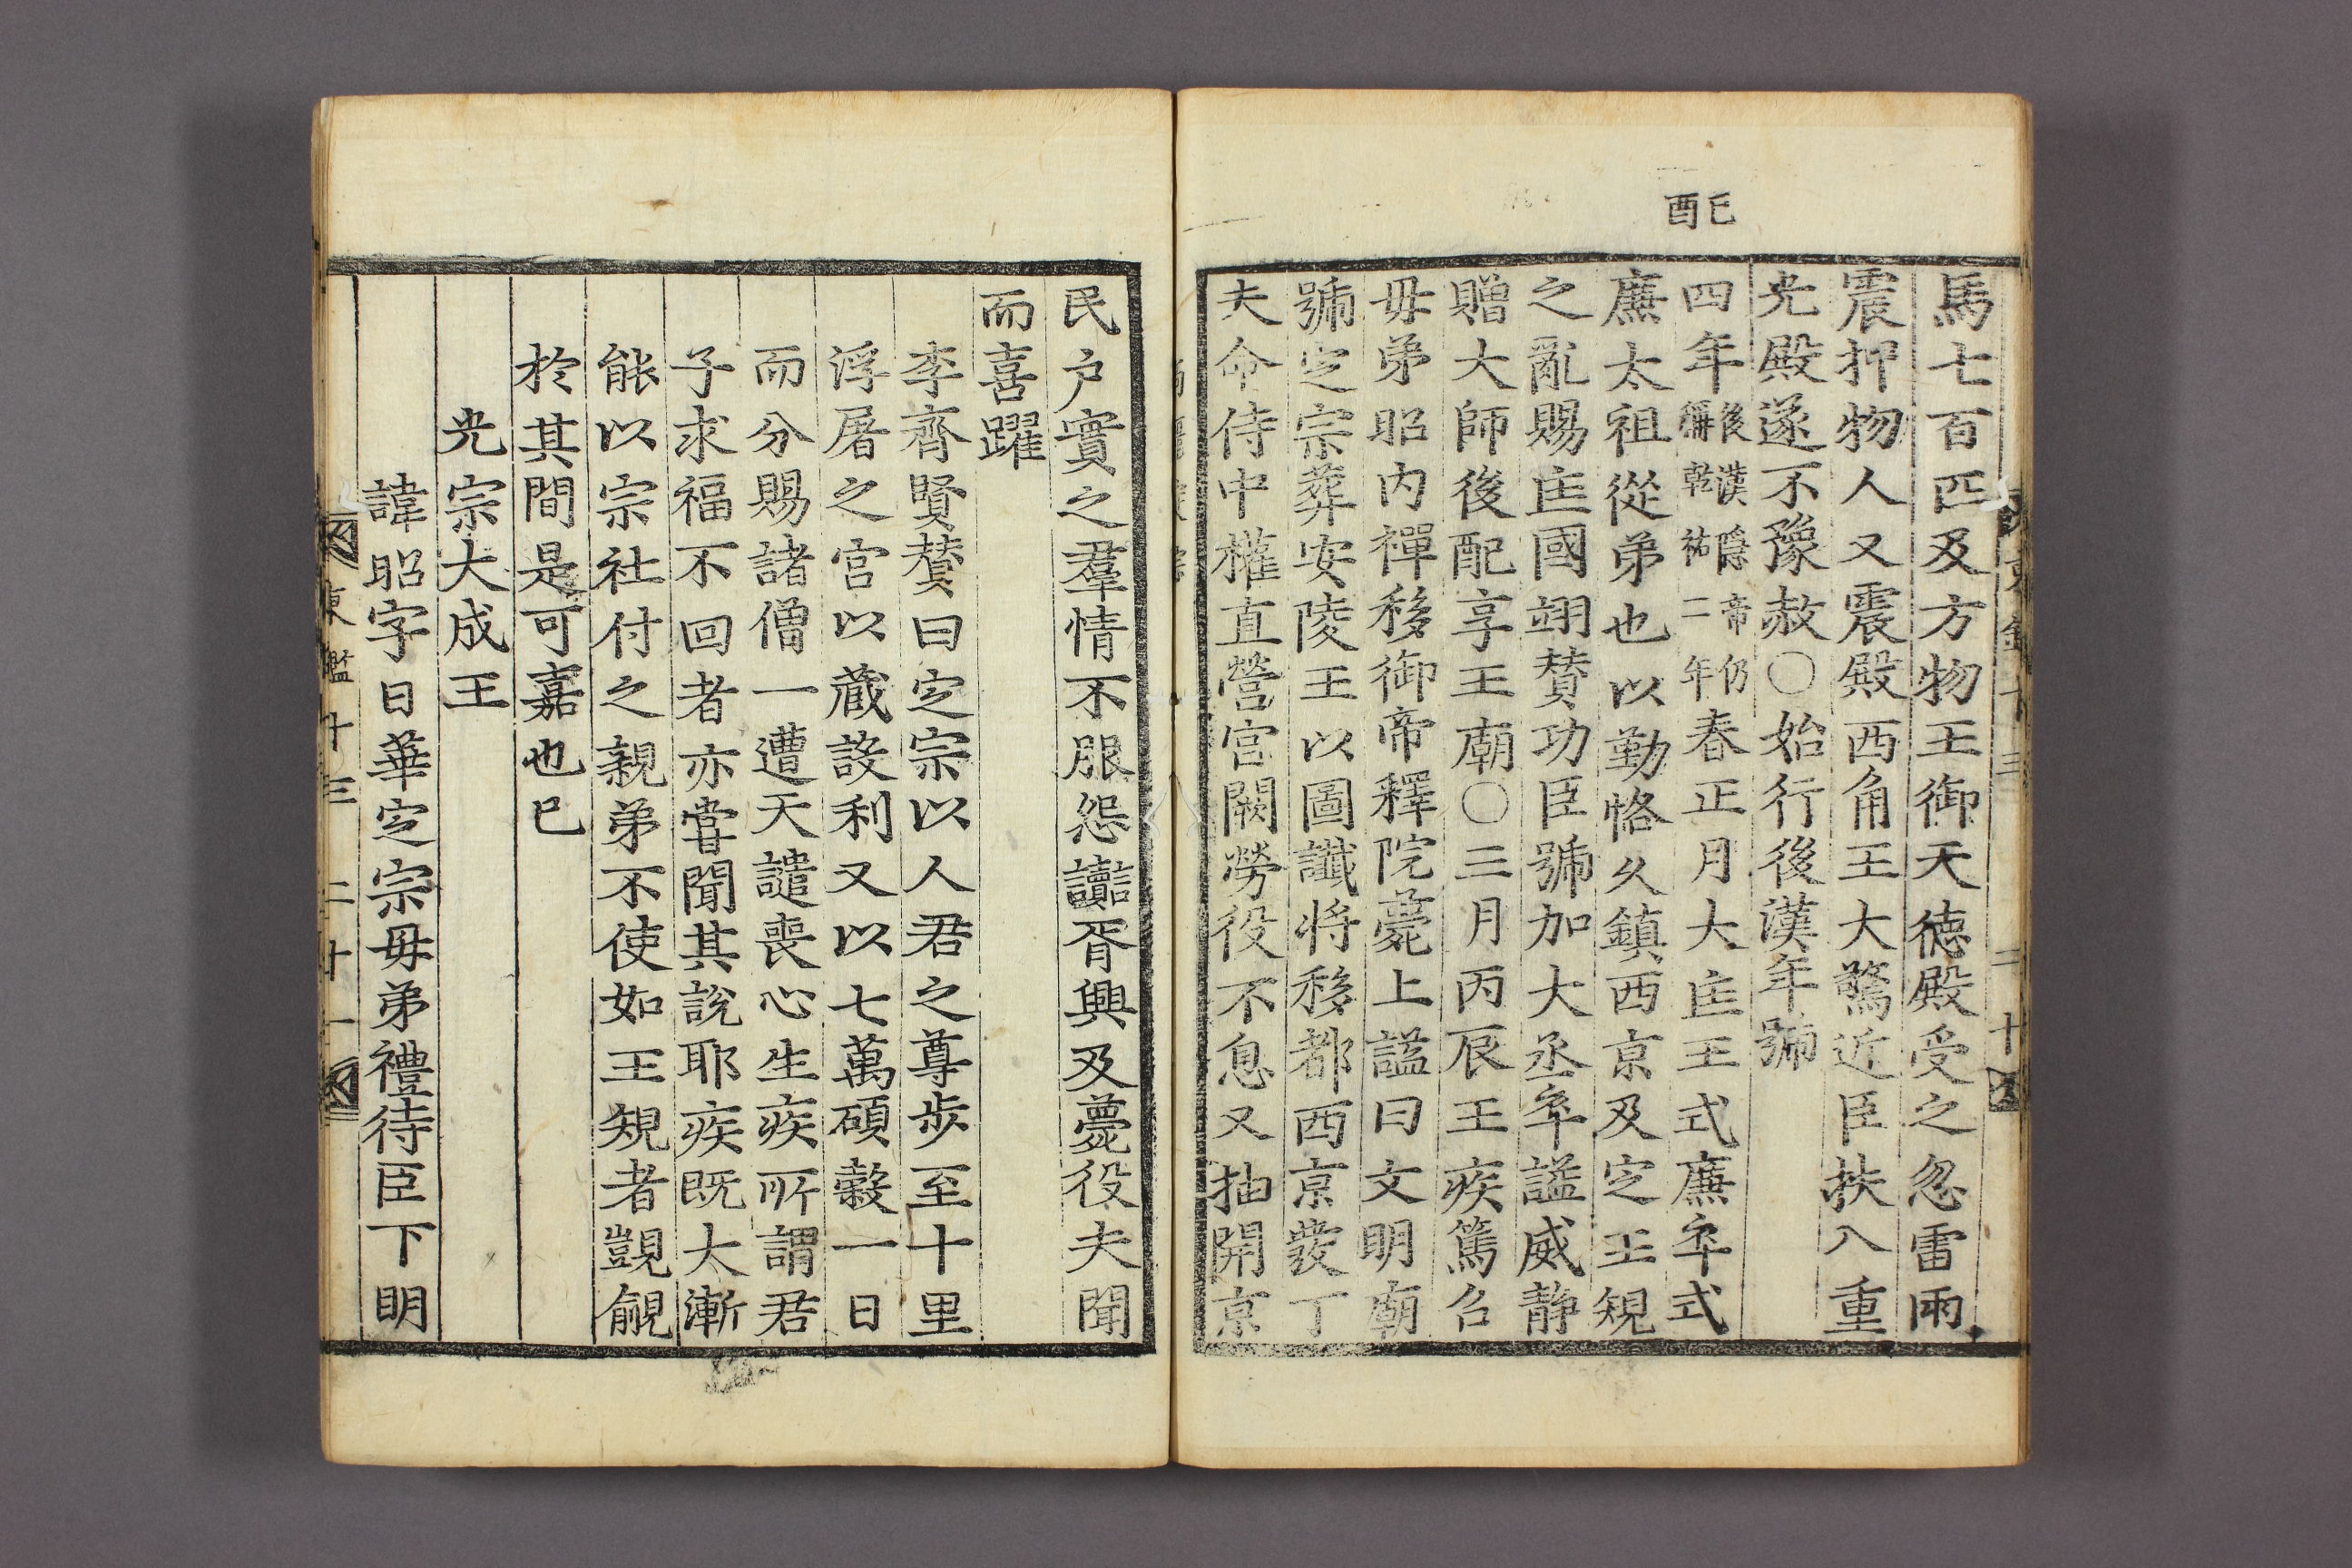 己酉
馬七百匹及方物王御天德殿受之忽雷雨
震押物人又震殿西角王大驚近臣扶入重
光殿遂不豫赦○始行後漢年號
四年後漢隱帝仍稱乾祐二年春正月大匡王式廉卒式
廉太祖從弟也以勤恪久鎮西京及定王規
之亂賜匡國翊賛功臣號加大丞卒謚威静
贈大師後配享王廟○三月丙辰王疾篤召
母弟昭内禪移御帝釋院薨上謚曰文明廟
號定宗葬安陵王以圖讖将移都西京發丁
夫命侍中權直營宮闕勞役不息又抽開京
民户實之羣情不服怨讟胥興及薨役夫聞
而喜躍
李齊賢賛曰定宗以人君之尊步至十里
浮屠之宮以藏設利又以七萬碩穀一日
而分賜諸僧一遭天譴喪心生疾所謂君
子求福不回者亦嘗聞其說耶疾既大漸
能以宗社付之親弟不使如王規者覬覦
於其間是可嘉也已
光宗大成王
諱昭字日華定宗母弟禮待臣下明
東鑑十三 二十一